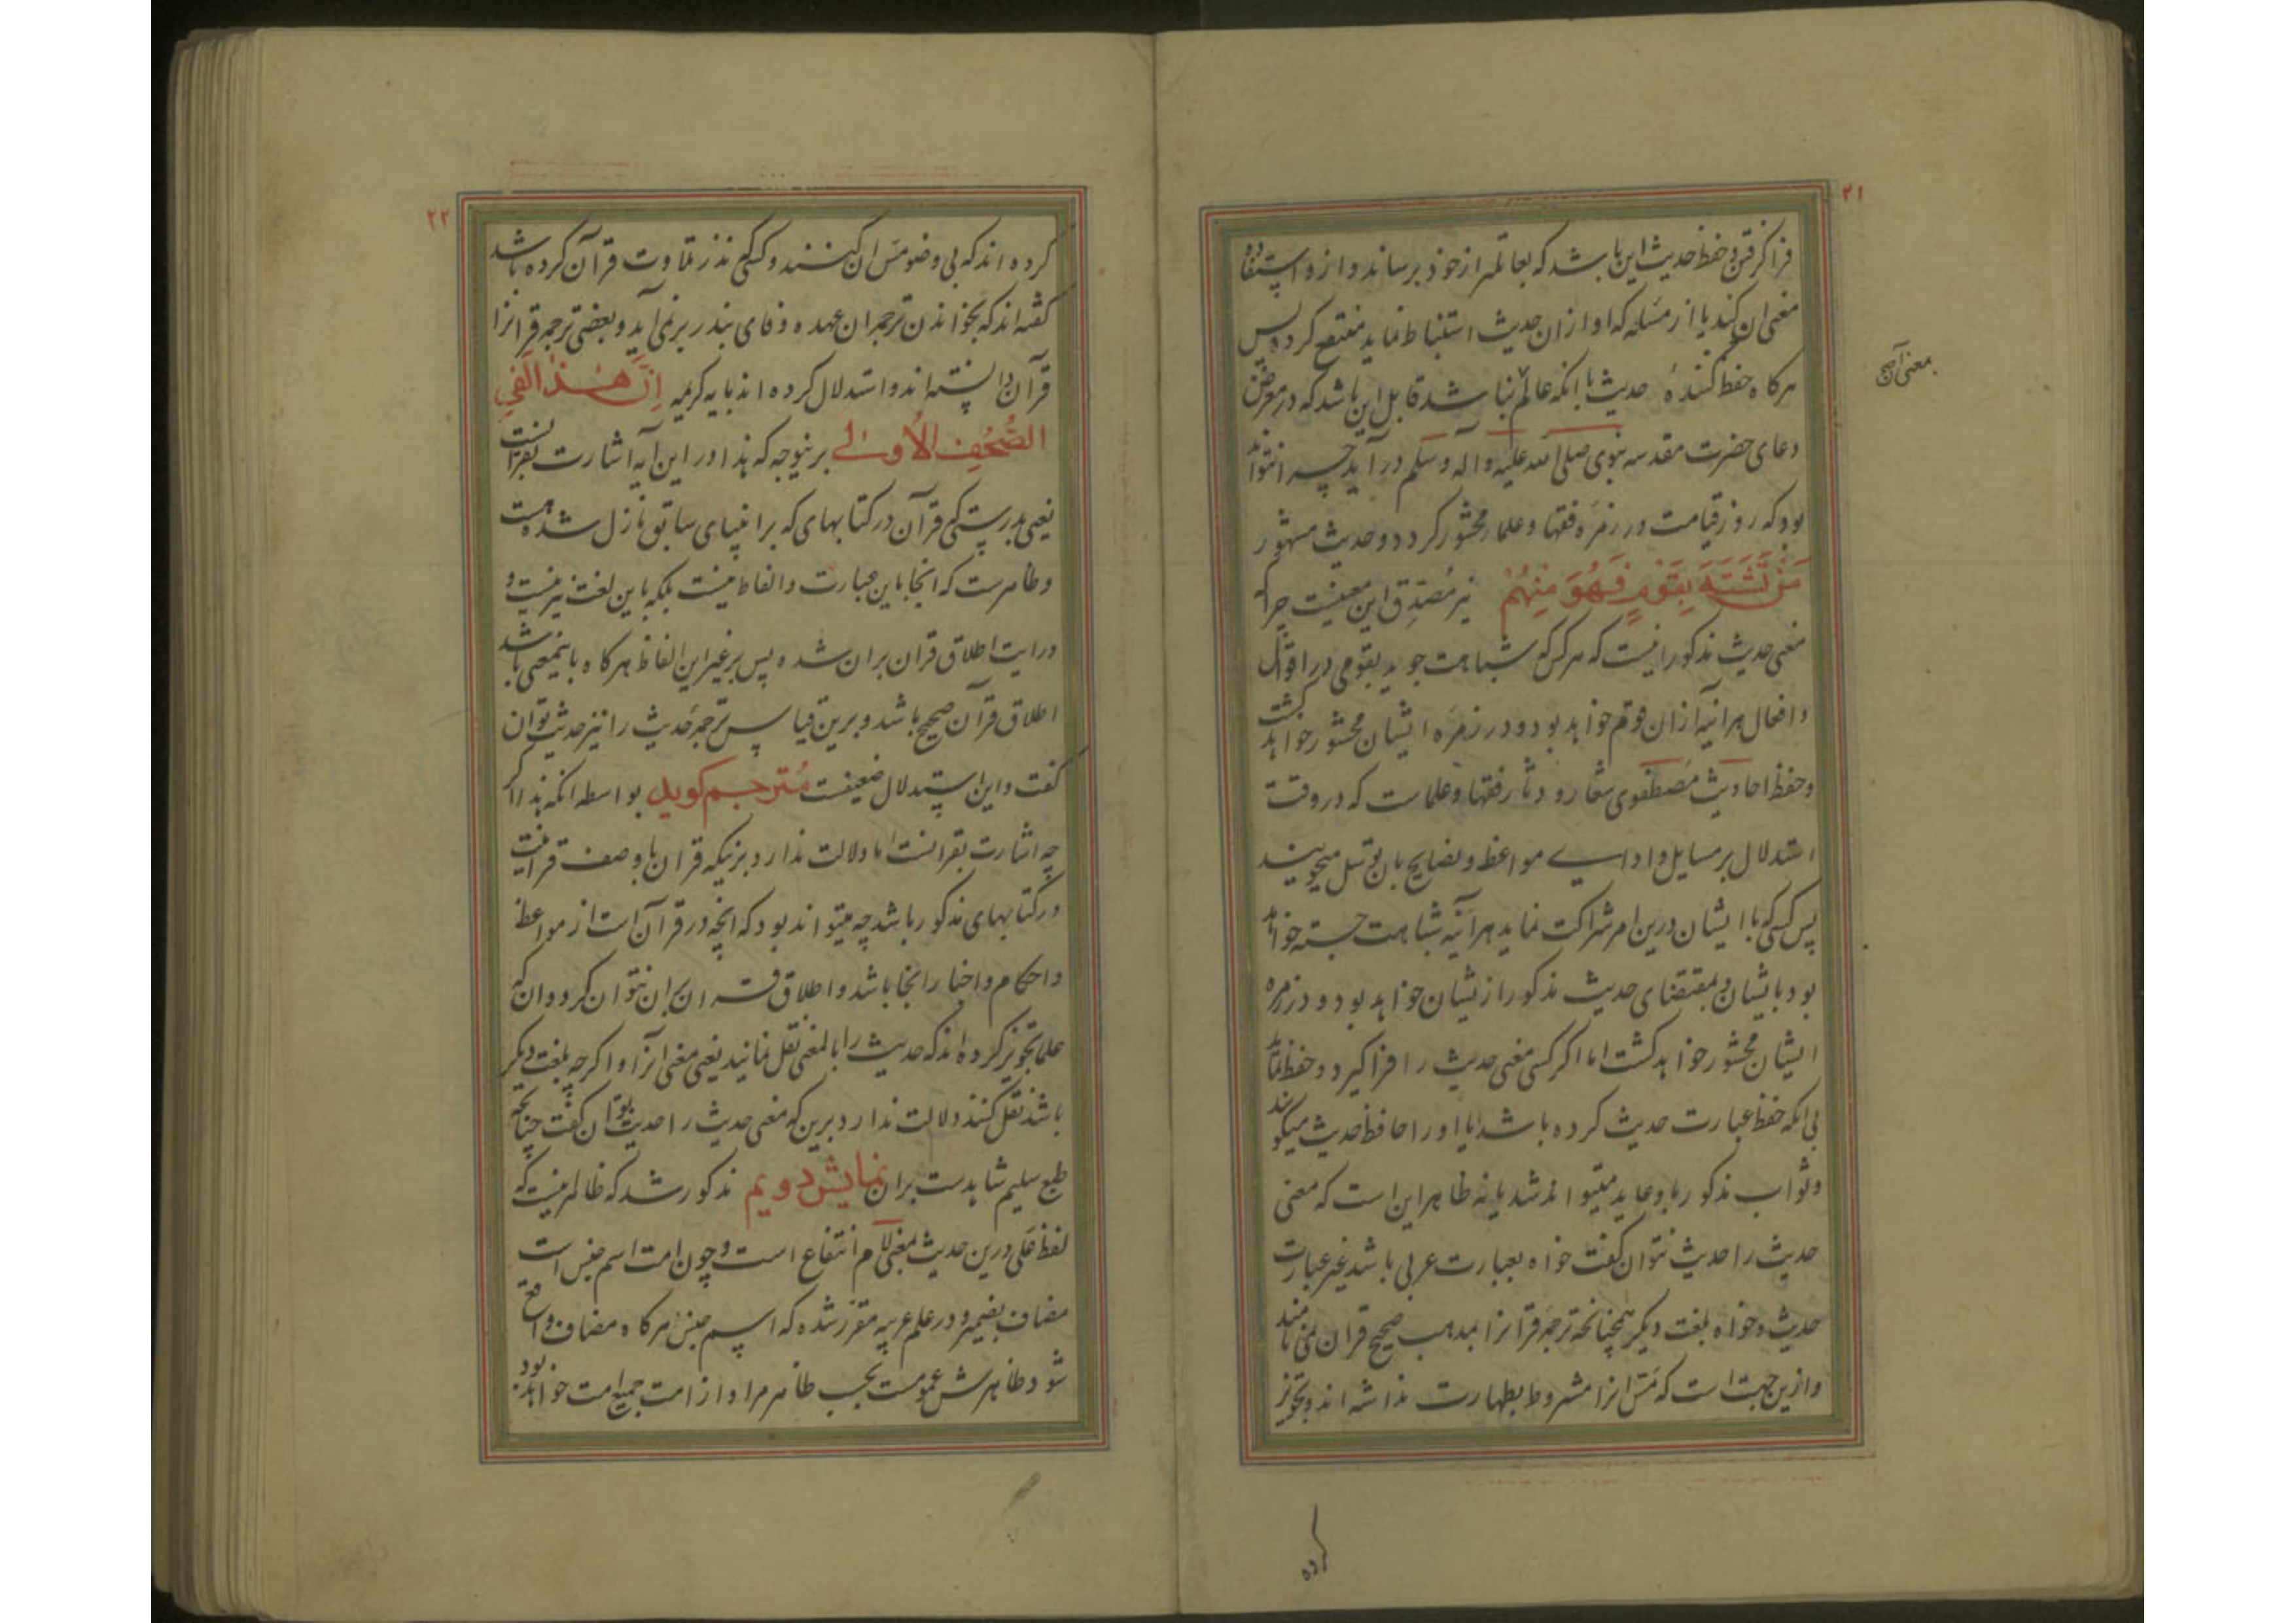 ۲۱
فرا گرفتن و حفظ حدیث این باشد که بعالم از خود برساند و ازو استفاده
معنی آن کند یا از مسئله که او از ان حدیث استنباط نماید منتفع کردد پس
هرکاه حفظ کننده حدیث با انکه عالم نباشد قابل این باشد که در معرض
دعای حضرت مقدسه نبوی صلی الله علیه و آله و سلم در آید چرا نتواند
بود که روز قیامت در زمره فقها و علما محشور کردد و حدیث مشهور
مَن تَشَبَّهَ بِقَوْمٍ فَهُوَ مِنْهُمْ نیز مُصَدِّق این معنیست چرا که
معنی حدیث مذکور اینست که هر کس که شباهت جوید بقومی در اقوال
و افعال هر آینه از ان قوم خواهد بود و در زمره ایشان محشور خواهد کشت
و حفظ احادیث مصطفوی شعار و دثار فقها و علماست که در وقت
استدلال بر مسایل و ادای مواعظ و نصایح بان توسل میجویند
پس کسی که با ایشان درین امر شراکت نماید هر آینه شباهت جسته خواهد
بود بایشان و بمقتضای حدیث مذکور از یشان خواهد بود و در زمره
ایشان محشور خواهد کشت اما اکر کسی معنی حدیث را فرا کیرد و حفظ نماید
بی انکه حفظ عبارت حدیث کرده باشد ایا او را حافظ حدیث میکویند
و ثواب مذکور باو عاید میتواند شد یا نه ظاهر این است که معنی
حدیث را حدیث نتوان کفت خواه بعبارت عربی باشد غیر عبارت
حدیث و خواه بلغت دیکر همچنانکه ترجمه قرانرا بمذهب صحیح قران نمی نامند
و ازین جهت است که مس انرا مشروط بطهارت نداشته اند و تجویز
کرده
۲۲
کرده اند که بی وضو مس ان کنند و کسی که نذر تلاوت قرآن کرده باشد
کفته اند که بخواندن ترجمه ان عهده وفای بنذر بر نمی آید و بعضی ترجمه قرانرا
قرآن دانسته اند و استدلال کرده اند بایه کریمه اِنَّ هٰذا لَفِی
الصُّحُفِ الْاُولیٰ برینوجه که هذا در این ایه اشارت بقرانست
یعنی بدرستی که قرآن در کتابهای که بر انبیای سابق نازل شده هست
و ظاهرست که انجا باین عبارت و الفاظ نیست بلکه باین لغت نیز نیست و
درایت اطلاق قران بران شده پس بر غیر این الفاظ هرکاه باینمعنی باشد
اطلاق قرآن صحیح باشد و برین قیاس ترجمه حدیث را نیز حدیث توان
کفت و این استدلال ضعیفست مُترجم کوید بواسطه انکه هذا اکر
چه اشارت بقرانست اما دلالت ندارد بر نیکه قران با وصف قرانیت
در کتابهای مذکور باشد چه میتواند بود که انچه در قرآن است از مواعظ
و احکام و اخبار انجا باشد و اطلاق قران بران نتوان کرد و ان که
علما تجویز کرده اند که حدیث را بالمعنی نقل نمانید یعنی معنی آنرا و اکر چه بلغت دیکر
باشد نقل کنند دلالت ندارد برین که معنی حدیث را حدیث توان کفت چنانچه
طبع سلیم شاهدست بران نمایش دویم مذکور شد که ظاهر نیست که
لفظ عَلی درین حدیث بمعنی لام انتفاع است و چون امت اسم جنس است
مضاف بضمیر و در علم عربیه مقرر شده که اسم جنس هرکاه مضاف واقع
شود ظاهرش عمومست بحسب ظاهر مراد از امت جمیع امت خواهد بود